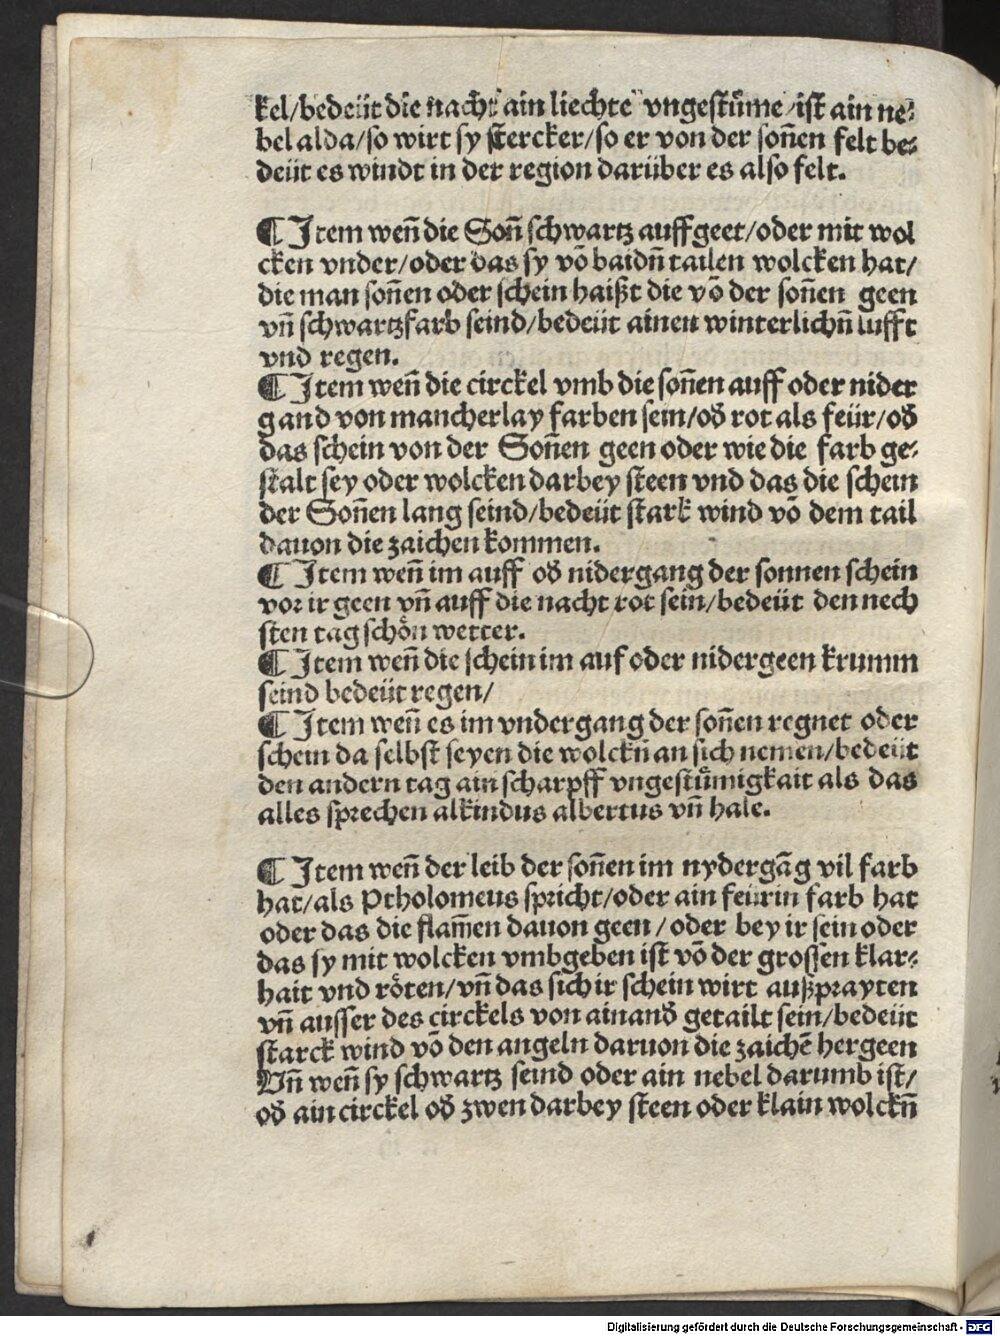 kel/bedeüt die nacht ain liechte vngestůme/ist ain ne⸗
bel alda/so wirt sy stercker/so er von der soñen felt be⸗
deüt es windt in der region darüber es also felt.
¶ Item weñ die Soñ schwartz auffgeet/oder mit wol
cken vnder/oder das sy võ baidñ tailen wolcken hat/
die man soñen oder schein haißt die võ der soñen geen
vñ schwartzfarb seind/bedeüt ainen winterlichñ lufft
vnd regen.
¶ Item weñ die circkel vmb die soñen auff oder nider
gand von mancherlay farben sein/od̕ rot als feür/od̕
das schein von der Soñen geen oder wie die farb ge⸗
stalt sey oder wolcken darbey steen vnd das die schein
der Soñen lang seind/bedeüt stark wind võ dem tail
dauon die zaichen kommen.
¶ Item weñ im auff od̕ nidergang der sonnen schein
vor ir geen vñ auff die nacht rot sein/bedeüt den nech
sten tag schoͤn wetter.
¶ Item weñ die schein im auf oder nidergeen krumm
seind bedeüt regen/
¶ Item weñ es im vndergang der soñen regnet oder
schein da selbst seyen die wolckñ an sich nemen/bedeüt
den andern tag ain scharpff vngestůmigkait als das
alles sprechen alkindus albertus vñ hale.
¶ Item weñ der leib der soñen im nydergãg vil farb
hat/als Ptholomeus spricht/oder ain feürin farb hat
oder das die flam̃en dauon geen/oder bey ir sein oder
das sy mit wolcken vmbgeben ist võ der grossen klar⸗
hait vnd roͤten/vñ das sich ir schein wirt außprayten
vñ ausser des circkels von ainand̕ getailt sein/bedeüt
starck wind võ den angeln daruon die zaichẽ hergeen
Vñ weñ sy schwartz seind oder ain nebel darumb ist/
od̕ ain circkel od̕ zwen darbey steen oder klain wolckñ
Digitalisierung gefördert durch die Deutsche Forschungsgemeinschaft - DFG